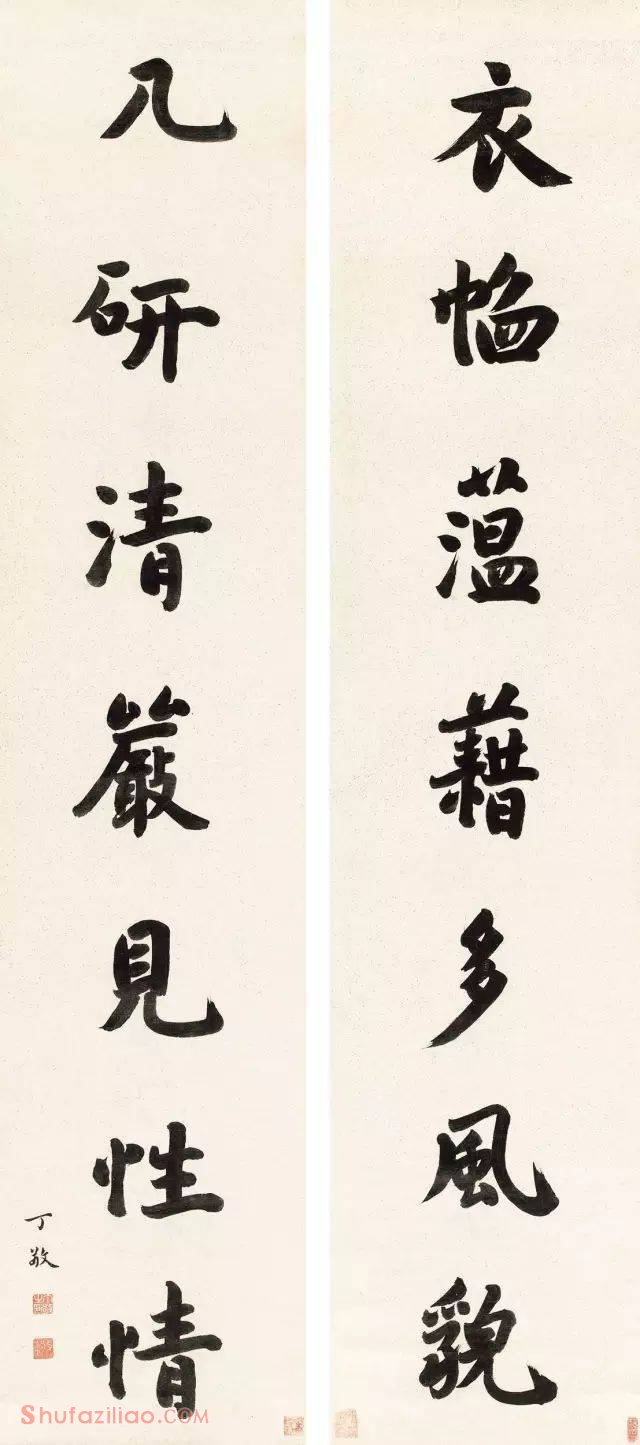 衣帢薀藉多風貌
几研清嚴見性情
丁敬
Shufaziliao.COM